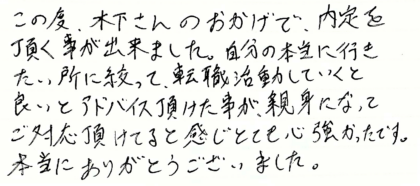 この度、木下さんのおかげで、内定を
頂く事が出来ました。自分の本当に行き
たい所に絞って、転職活動していくと
良いとアドバイス頂けた事が、親身になって
ご対応頂けてると感じとても心強かったです。
本当にありがとうございました。